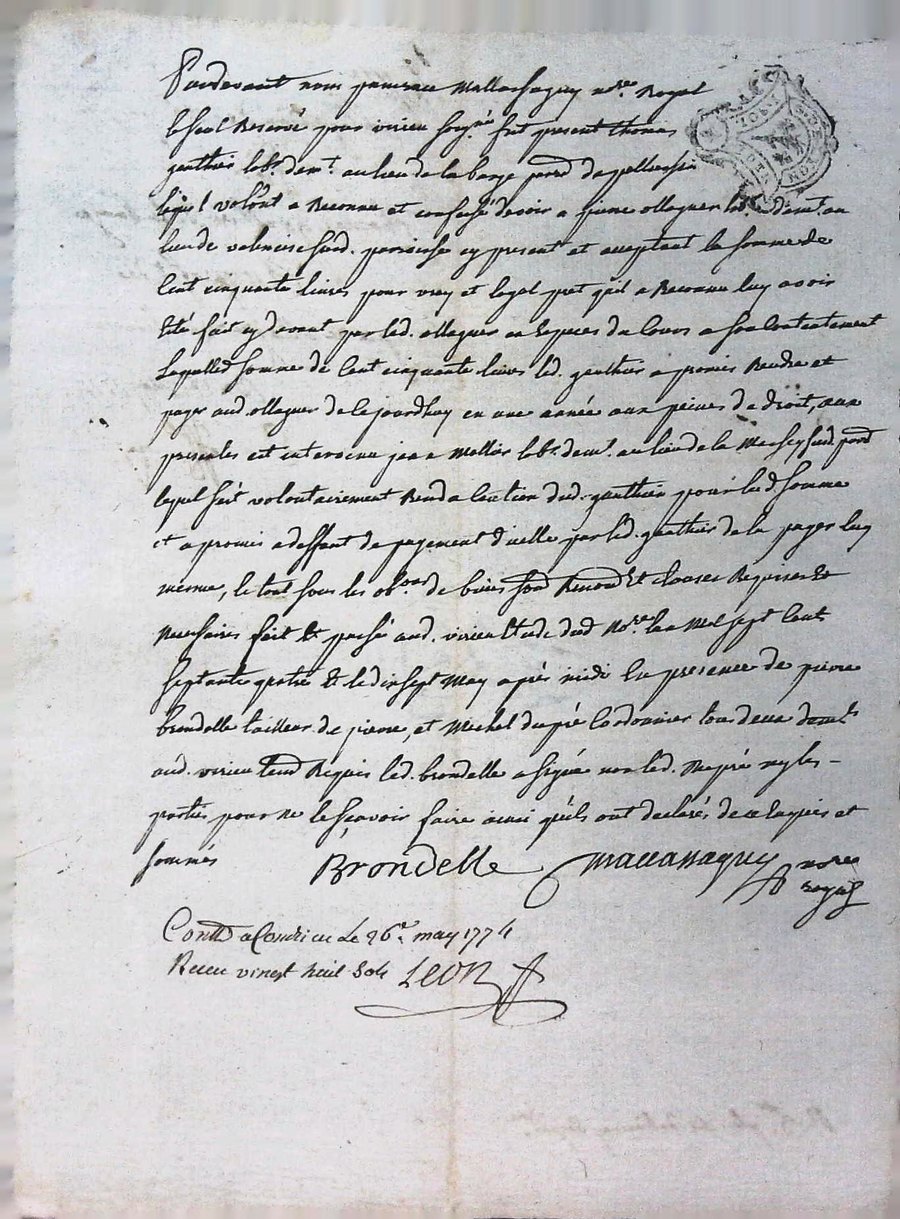 Pardevant nous Mallassagny no.re Royal
le seul Reservé pour virieu soy.né fut present thomas
gauthier lab.r dem.t au lieu de la barge
lequel volont a Reconnu et confessé devoir a pierre ollagner lab.r dem.t au
lieu de sud. parroisse cy present et acceptant la somme de
Cent cinquante livres pour vray et legal pret qu'il a Reconnu luy avoir
Eté fait cy devant par led. ollagner en Especes du Cours a son Contentement
Laquelle somme de Cent cinquante livres led. gauthier a promis Rendre et
payer aud. ollagner de ce jourdhuy en une année aux peines de droit, aux
presentes est intervenu jean Mallier lab.r dem.t au lieu de la sud. parr
lequel fait volontairement Rend a Caution dud. gauthier pour lad somme
et a promis a deffaut de payement d'icelle par led. gauthier de la payer luy
meme, le tout sous les de biens soum Renond et clauses Requises Et
Necessaires fait Et passé aud. virieu Etude dud No.re l'an Mil sept Cent
septante quatre Et le dix sept May après midi En presence de pierre
brondelle tailleur de pierre, et Michel dupré Cordonnier tous deux dem.ts
aud. virieu Requis led. brondelle a signé non led. dupré ny les
parties pour ne le sçavoir faire ainsi qu'ils ont declarés de ce Enquis et
sommés Brondelle Mallassagny no.re
royal
Contt a Condrieu Le 26.e may 1774
Receu vingt huit sols LEON